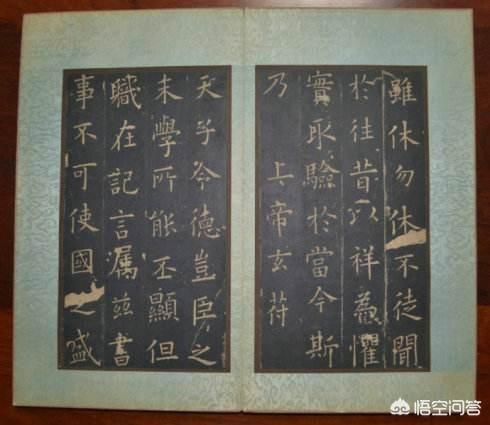 雖休勿休不徒聞
於往昔以祥為懼
實取驗於當今斯
乃上帝玄符
天子令德豈臣之
末學所能丕顯但
職在記言屬茲書
事不可使國之盛
悟空问答